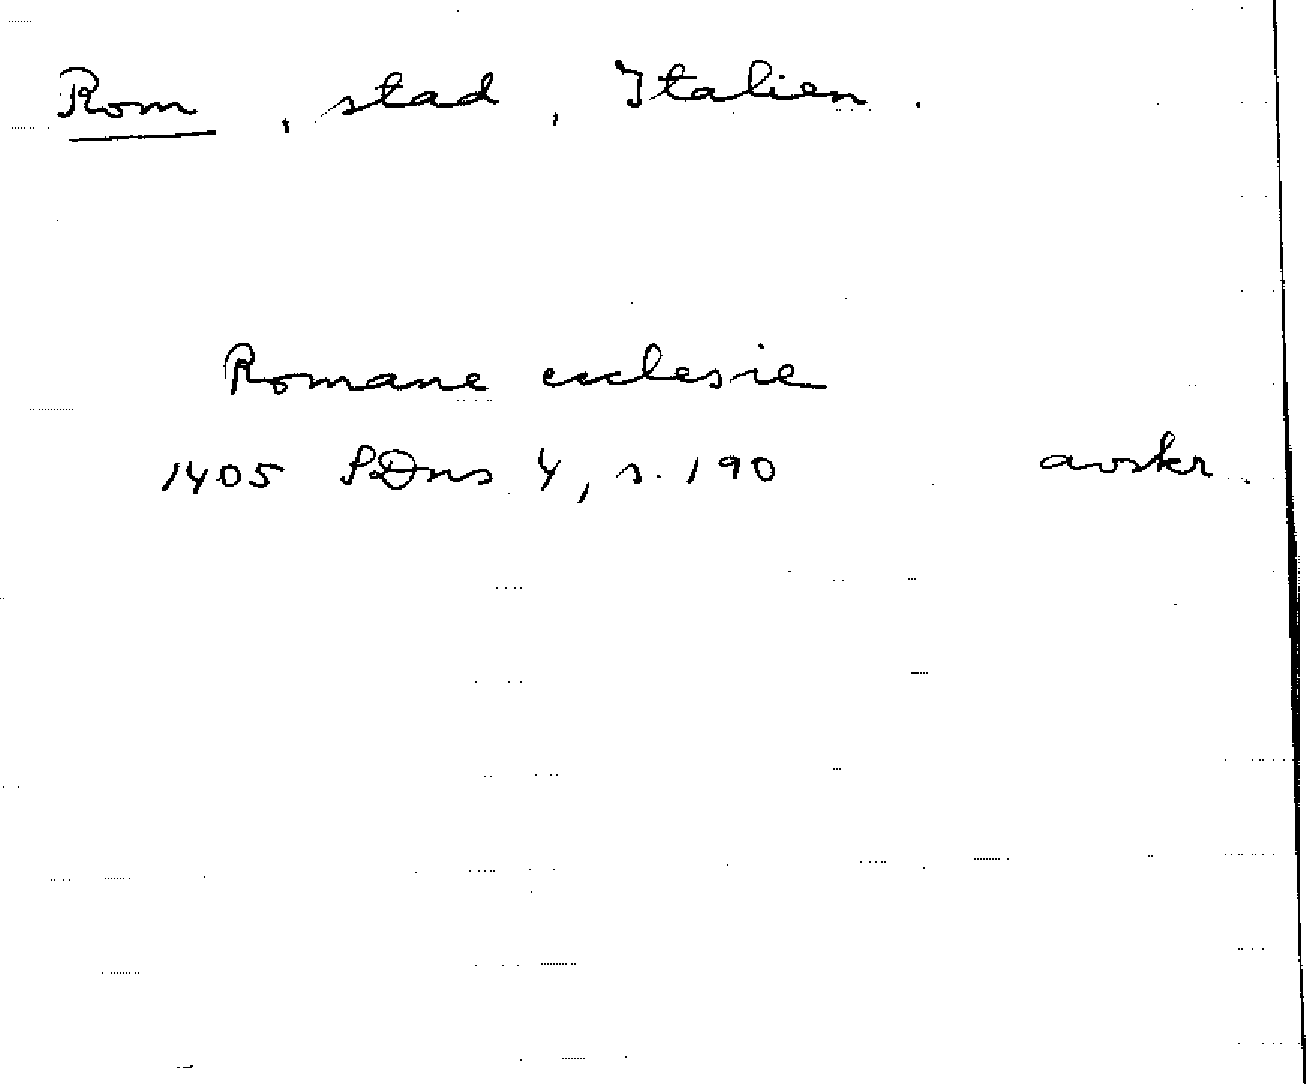 Rom, stad, Italien.
Romane ecclesie
1405 SDns 4, s. 190 avskr.